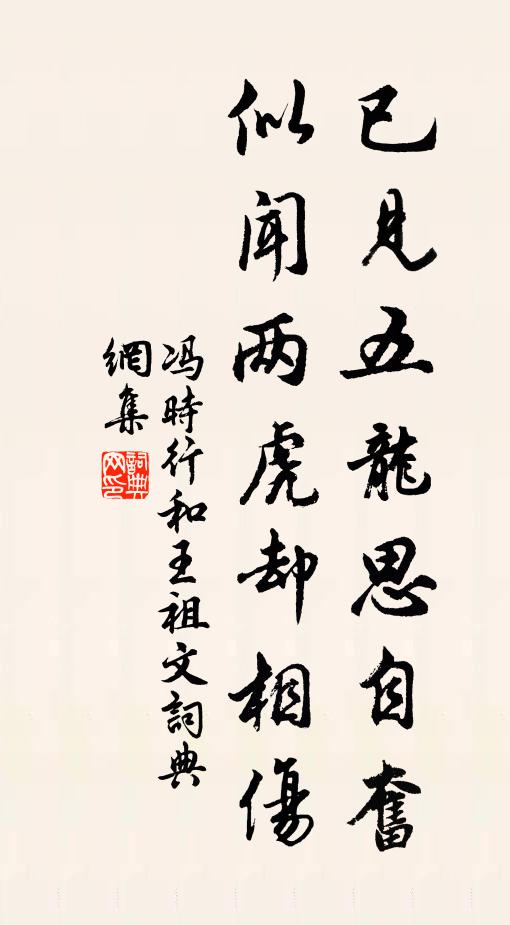 已見五龍思自奮
似聞两虎却相傷
馮時行和王祖文詞典
網集
詞典网印